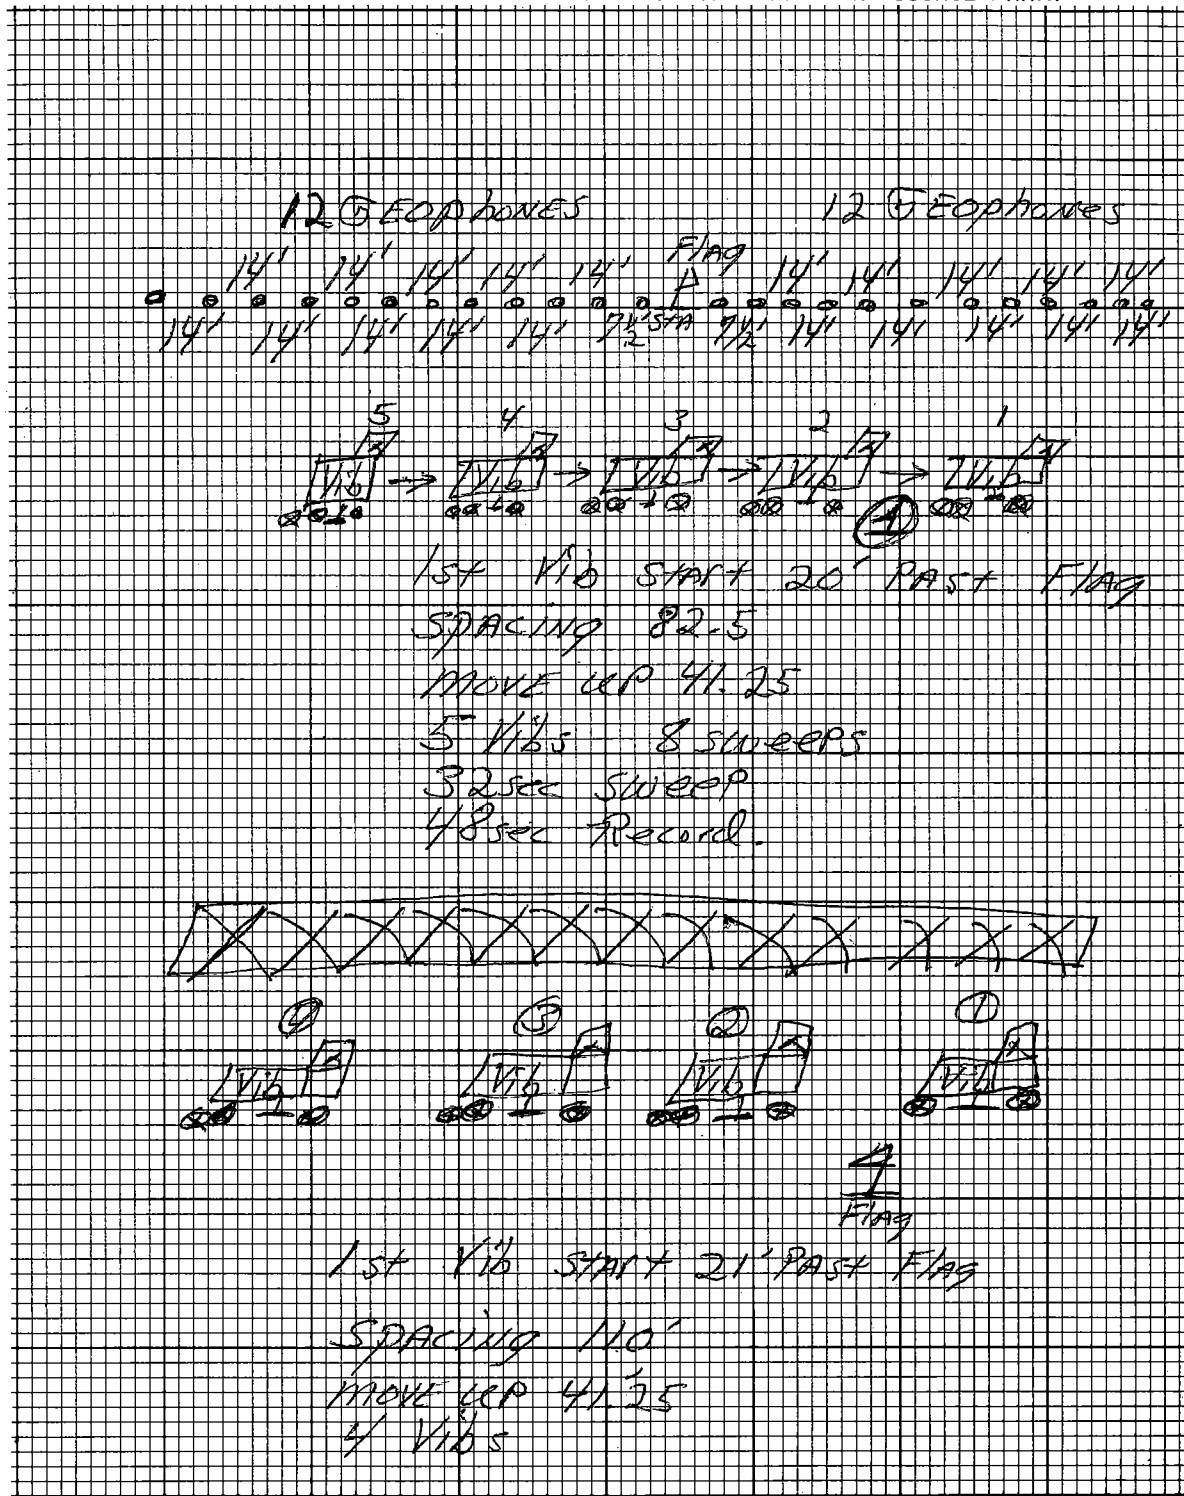 12 GEOPhONES 12 GEOphones
Flag
14' 14' 14' 14' 14' 14' 14' 14' 14' 14'
14' 14' 14' 14' 14' 7 1/2' STA 7 1/2' 14' 14' 14' 14' 14'
5 4 3 2 1
Vib Vib Vib Vib Vib
1
1st Vib START 20' PAST FlAg
SPACING 82.5
MOVE UP 41.25
5 Vibs 8 sweeps
32sec sweep
48sec Record.
4 3 2 1
Vib Vib Vib Vib
Flag
1st Vib START 21' PAST FlAg
SPACING 110'
MOVE UP 41.25
4 Vibs